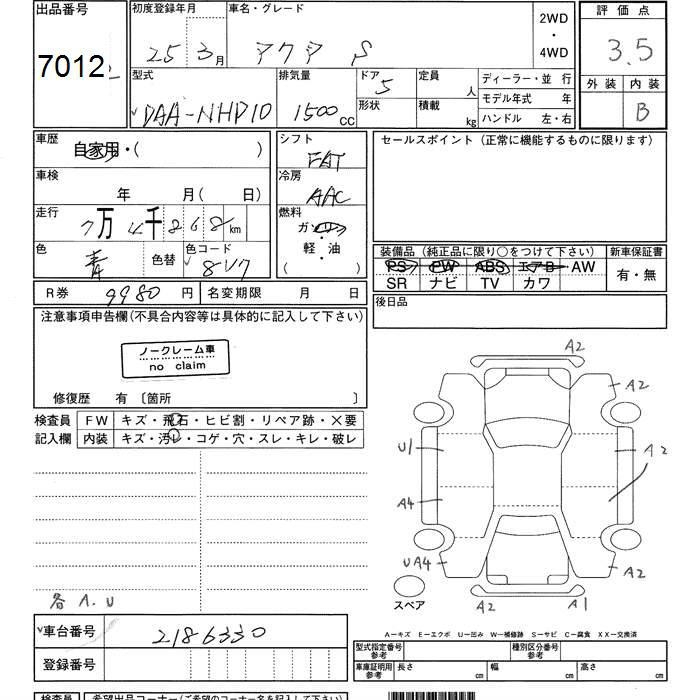 出品番号
7012
初度登録年月
25 3月
車名・グレード
アクア S
2WD
・
4WD
評価点
3.5
外装 内装
B
型式
DAA-NHP10
排気量
1500cc
ドア
5
形状
定員
人
積載
kg
ディーラー・並 行
モデル年式 年
ハンドル 左・右
車歴
自家用・( )
車検
年 月(日)
走行
7万4千268km
色
青
色替
色コード
8V7
シフト
FAT
冷房
AAC
燃料
ガソリン
・
軽・油
( )
セールスポイント (正常に機能するものに限ります)
装備品 (純正品に限り○をつけて下さい)
PS PW ABS エアB AW
SR ナビ TV カワ
新車保証書
有・無
R券 9980円
名変期限 月 日
後日品
注意事項申告欄(不具合内容等は具体的に記入して下さい)
ノークレーム車
no claim
修復歴 有 〔箇所 〕
検査員
記入欄
FW キズ・飛石・ヒビ割・リペア跡・×要
内装 キズ・汚レ・コゲ・穴・スレ・キレ・破レ
各 A.U
A2
A2
U1
A2
A4
UA4
A2
A2
A1
スペア
A－キズ E－エクボ U－凹み W－補修跡 S－サビ C－腐食 XX－交換済
車台番号
2186330
登録番号
型式指定番号
参考
種別区分番号
参考
車庫証明用
参考
長さ cm
幅 cm
高さ cm
検査員
希望出品コーナー(ご希望のコーナー名を記入して下さい)